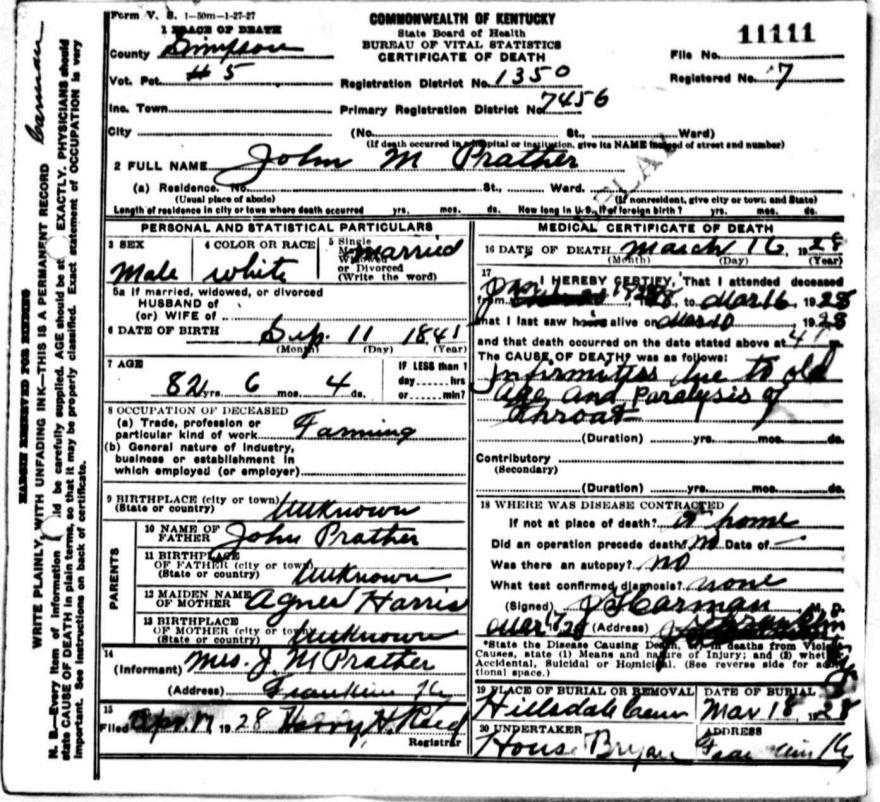 Form V. S. 1—50m—1-27-27
COMMONWEALTH OF KENTUCKY
State Board of Health
BUREAU OF VITAL STATISTICS
CERTIFICATE OF DEATH
11111
File No.
Registered No. 7
1 PLACE OF DEATH
County Simpson
Vot. Pct. # 5
Registration District No. 1350
Inc. Town
Primary Registration District No. 7456
City (No. St., Ward)
(If death occurred in a hospital or institution, give its NAME instead of street and number)
2 FULL NAME John M Prather
(a) Residence. No. St., Ward.
(Usual place of abode) (If nonresident, give city or town and State)
Length of residence in city or town where death occurred yrs. mos. ds. How long in U. S., if of foreign birth? yrs. mos. ds.
PERSONAL AND STATISTICAL PARTICULARS
3 SEX
Male
4 COLOR OR RACE
white
5 Single
Married
Widowed
or Divorced
(Write the word)
married
5a If married, widowed, or divorced
HUSBAND of
(or) WIFE of
6 DATE OF BIRTH Sep. 11 1841
(Month) (Day) (Year)
7 AGE
82 yrs. 6 mos. 4 ds.
IF LESS than 1
day ...... hrs
or ...... min?
8 OCCUPATION OF DECEASED
(a) Trade, profession or
particular kind of work Farming
(b) General nature of industry,
business or establishment in
which employed (or employer)
9 BIRTHPLACE (city or town)
(State or country) Unknown
PARENTS
10 NAME OF
FATHER John Prather
11 BIRTHPLACE
OF FATHER (city or town)
(State or country) Unknown
12 MAIDEN NAME
OF MOTHER Agnes Harris
13 BIRTHPLACE
OF MOTHER (city or town)
(State or country) Unknown
14
(Informant) Mrs. J. M Prather
(Address) Franklin Ky
15
Filed Apr. 17 1928 Henry H. Reed
Registrar
MEDICAL CERTIFICATE OF DEATH
16 DATE OF DEATH March 16, 1928
(Month) (Day) (Year)
17
I HEREBY CERTIFY, That I attended deceased
from Jan 1928, to Mar 16, 1928
that I last saw him alive on Mar 10 1928
and that death occurred on the date stated above at 4 m.
The CAUSE OF DEATH* was as follows:
Infirmities due to old
age and Paralysis of
throat
(Duration) yrs. mos. ds.
Contributory
(Secondary)
(Duration) yrs. mos. ds.
18 WHERE WAS DISEASE CONTRACTED
If not at place of death? at home
Did an operation precede death? no Date of —
Was there an autopsy? no
What test confirmed diagnosis? none
(Signed) J Harman M. D.
Mar 28 (Address) Franklin
*State the Disease Causing Death, or, in deaths from Violent
Causes, state (1) Means and nature of Injury; and (2) whether
Accidental, Suicidal or Homicidal. (See reverse side for additional space.)
19 PLACE OF BURIAL OR REMOVAL
Hillsdale Cem
DATE OF BURIAL
Mar 18, 1928
20 UNDERTAKER
House Bryan
ADDRESS
Franklin Ky
MARGIN RESERVED FOR BINDING
WRITE PLAINLY, WITH UNFADING INK—THIS IS A PERMANENT RECORD
N. B.—Every item of information should be carefully supplied. AGE should be stated EXACTLY. PHYSICIANS should
state CAUSE OF DEATH in plain terms, so that it may be properly classified. Exact statement of OCCUPATION is very
important. See instructions on back of certificate.